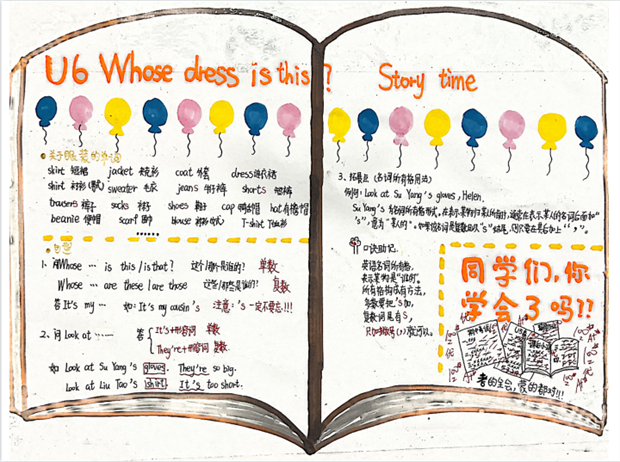 U6 Whose dress is this?
Story time
关于服装的单词
skirt 短裙 jacket 夹克衫 coat 外套 dress 连衣裙
shirt 衬衫(男式) sweater 毛衣 jeans 牛仔裤 shorts 短裤
trousers 裤子 socks 袜子 shoes 鞋子 cap 鸭舌帽 hat 有檐帽
beanie 便帽 scarf 围巾 blouse 衬衫(女式) T-shirt T恤衫
......
1、问Whose … is this / is that? 这个/那个是谁的? 单数
Whose … are these / are those 这些/那些是谁的? 复数
答 It's my … 如: It's my cousin's 注意: 's 一定不要忘!!!
2、问 Look at …… 答 It's+形容词 单数
They're+形容词 复数
如 Look at Su Yang's gloves, They're so big.
Look at Liu Tao's shirt, It's too short.
3、拓展区 (名词所有格用法)
例问: Look at Su Yang's gloves, Helen.
口诀助记
英语名词所有格,
表示某物是"谁的".
所有格构成有方法,
多数要把's加,
复数词尾有s,
只加撇号(')就可以.
同学们,你
学会了吗??
考的全会,蒙的都对!!!